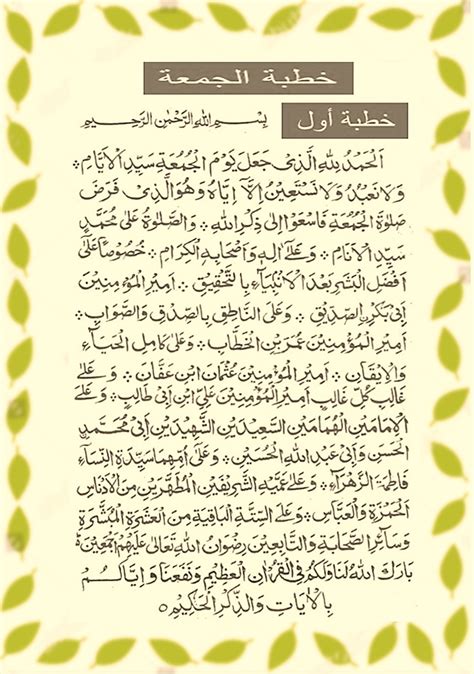 خطبة الجمعة
خطبة أول
بِسْمِ اللهِ الرَّحْمٰنِ الرَّحِيمِ
اَلْحَمْدُ لِلّٰهِ الَّذِىْ جَعَلَ يَوْمَ الْجُمُعَةِ سَيِّدِ الْاَيَّامِ ❊
وَلَا نَعْبُدُ وَلَا نَسْتَعِيْنُ اِلَّا اِيَّاهُ وَهُوَ الَّذِىْ فَرَضَ
صَلٰوةَ الْجُمُعَةِ فَاسْعَوْا اِلٰى ذِكْرِ اللهِ ❊ وَالصَّلٰوةُ عَلٰى مُحَمَّدٍ
سَيِّدِ الْاَنَامِ ❊ وَعَلٰى اٰلِهٖ وَاَصْحَابِهِ الْكِرَامِ ❊ خُصُوْصًا عَلٰى
اَفْضَلِ الْبَشَرِ بَعْدَ الْاَنْبِيَآءِ بِالتَّحْقِيْقِ ❊ اَمِيْرِ الْمُؤْمِنِيْنَ
اَبِىْ بَكْرِ الصِّدِّيْقِ ❊ وَعَلَى النَّاطِقِ بِالصِّدْقِ وَالصَّوَابِ ❊
اَمِيْرِ الْمُؤْمِنِيْنَ عُمَرَ بْنِ الْخَطَّابِ ❊ وَعَلٰى كَامِلِ الْحَيَآءِ
وَالْاِيْقَانِ ❊ اَمِيْرِ الْمُؤْمِنِيْنَ عُثْمَانَ ابْنِ عَفَّانَ ❊ وَعَلٰى
غَالِبِ كُلِّ غَالِبٍ اَمِيْرِ الْمُؤْمِنِيْنَ عَلِىِّ ابْنِ اَبِىْ طَالِبٍ ❊ وَعَلَى
الْاِمَامَيْنِ الْهُمَامَيْنِ السَّعِيْدَيْنِ الشَّهِيْدَيْنِ اَبِىْ مُحَمَّدٍ
الْحَسَنِ وَاَبِىْ عَبْدِ اللهِ الْحُسَيْنِ ❊ وَعَلٰى اُمِّهِمَا سَيِّدَةِ النِّسَآءِ
فَاطِمَةَ الزَّهْرَآءِ ❊ وَعَلٰى عَمَّيْهِ الشَّرِيْفَيْنِ الْمُطَهَّرَيْنِ مِنَ الْاَدْنَاسِ
الْحَمْزَةِ وَالْعَبَّاسِ ❊ وَعَلَى السِّتَّةِ الْبَاقِيَةِ مِنَ الْعَشَرَةِ الْمُبَشَّرَةِ
وَسَآئِرِ الصَّحَابَةِ وَالتَّابِعِيْنَ رِضْوَانُ اللهِ تَعَالٰى عَلَيْهِمْ اَجْمَعِيْنَ ❊
بَارَكَ اللهُ لَنَا وَلَكُمْ فِى الْقُرْاٰنِ الْعَظِيْمِ وَنَفَعَنَا وَاِيَّاكُمْ
بِالْاٰيَاتِ وَالذِّكْرِ الْحَكِيْمِ ○